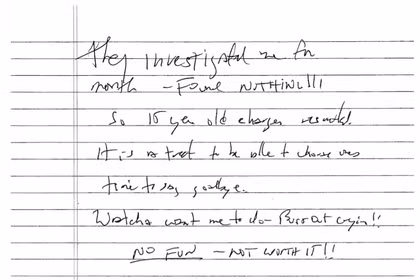 They investigated me for
month - Found NOTHING!!!
So 15 year old charges resulted.
It is treat to be able to choose ones
time to say goodbye.
Watcha want me to do - Burst out crying!!
NO FUN - NOT WORTH IT!!